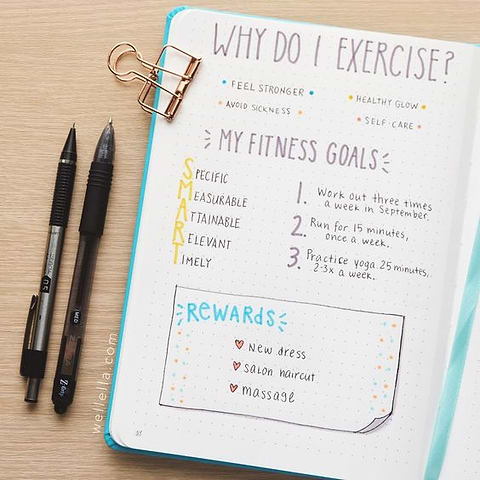 WHY DO I EXERCISE?
FEEL STRONGER
HEALTHY GLOW
AVOID SICKNESS
SELF-CARE
MY FITNESS GOALS
SPECIFIC
MEASURABLE
ATTAINABLE
RELEVANT
TIMELY
1. Work out three times
a week in September.
2. Run for 15 minutes,
once a week.
3. Practice yoga 25 minutes,
2-3x a week.
REWARDS
New dress
salon haircut
massage
wellella.com
0.5
MED
Z-Grip